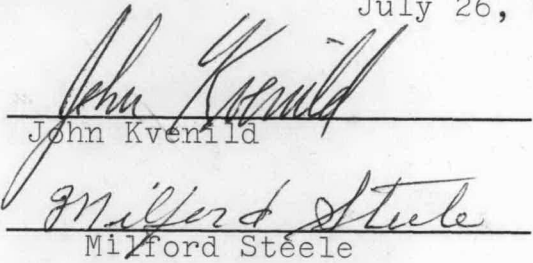 July 26,
John Kvenild
John Kvenild
Milford Steele
Milford Steele